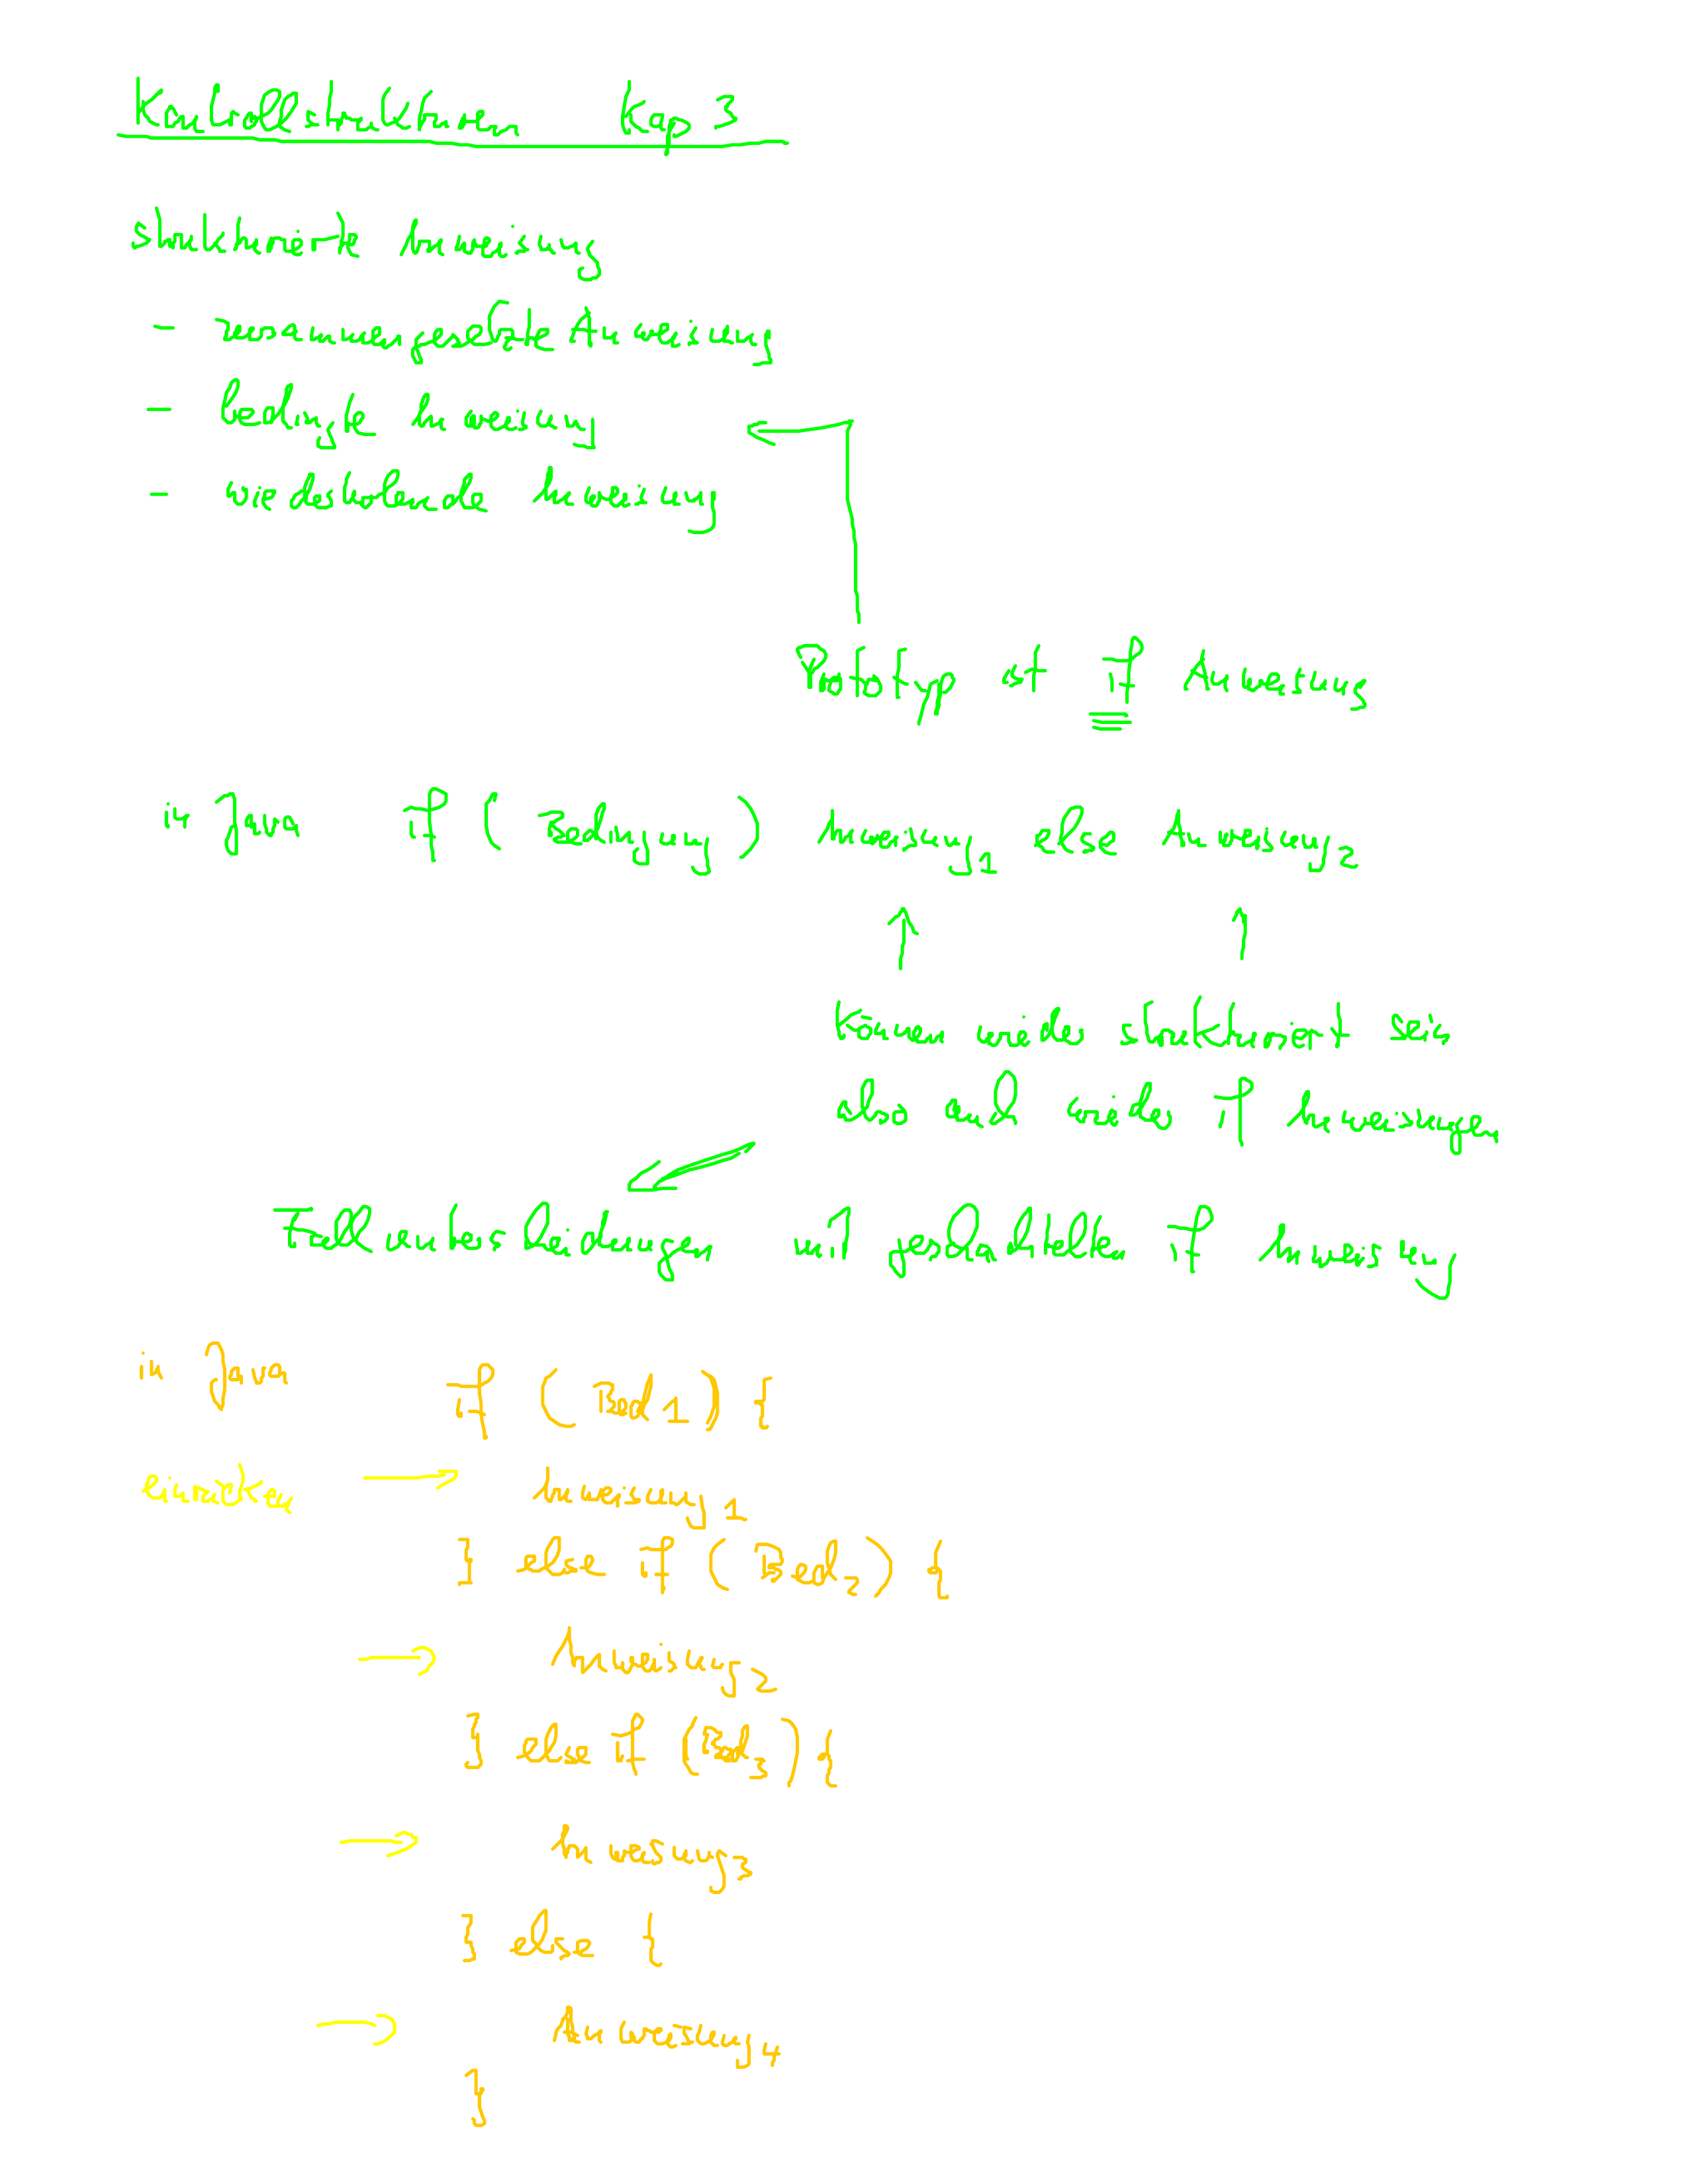 Kontrollstrukturen Kap 3
strukturierte Anweisung
- zusammengesetzte Anweisung
- bedingte Anweisung
- wiederholende Anweisung
Prototyp ist if Anweisung
in Java if ( Bedingung ) Anweisung1 else Anweisung2
können wieder strukturiert sein
also auch wieder if Anweisungen
Fallunterscheidungen mit geschachtelten if Anweisung
in Java if ( Bed1 ) {
einrücken Anweisung1
} else if ( Bed2 ) {
Anweisung2
} else if ( Bed3 ) {
Anweisung3
} else {
Anweisung4
}